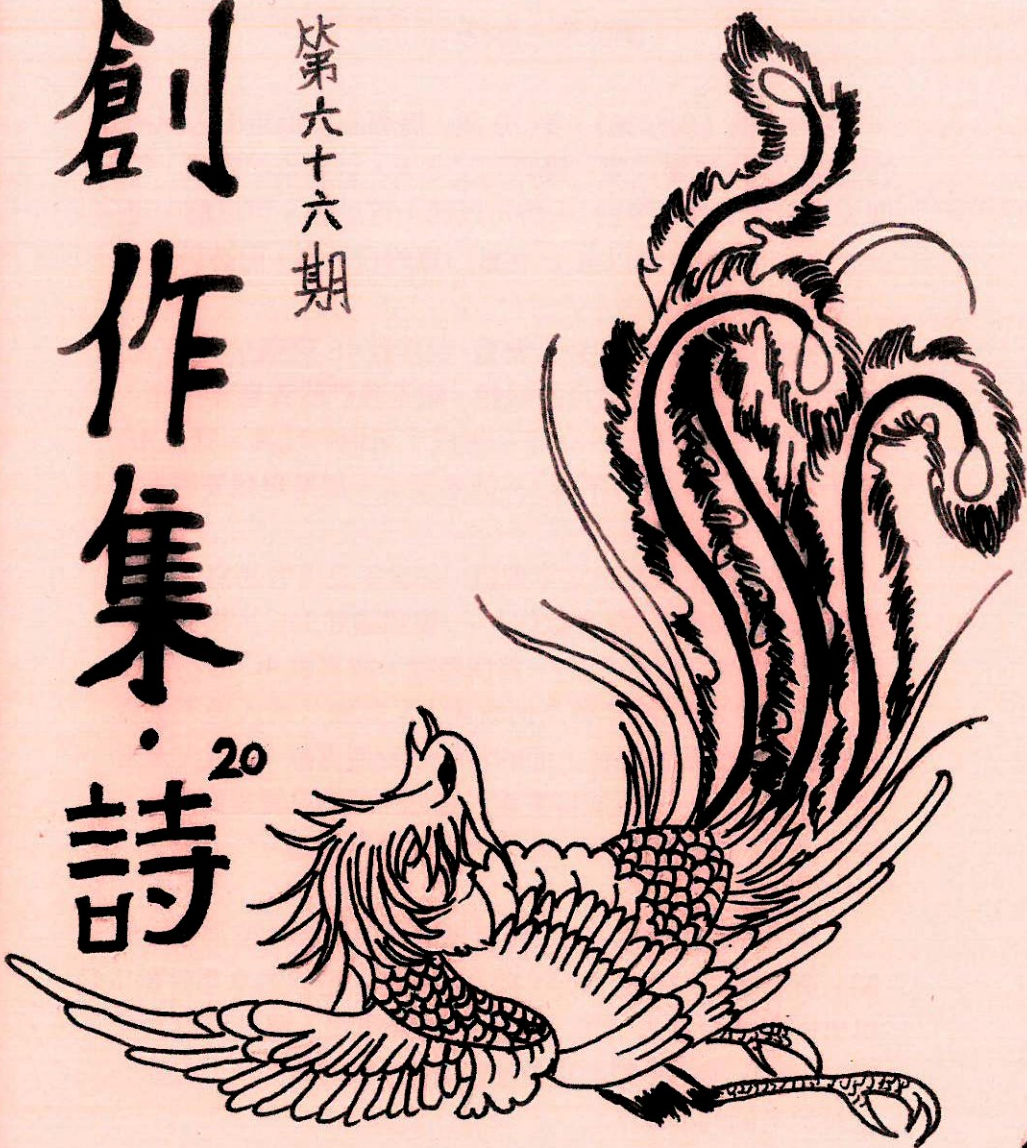 創作集·詩
20
第六十六期